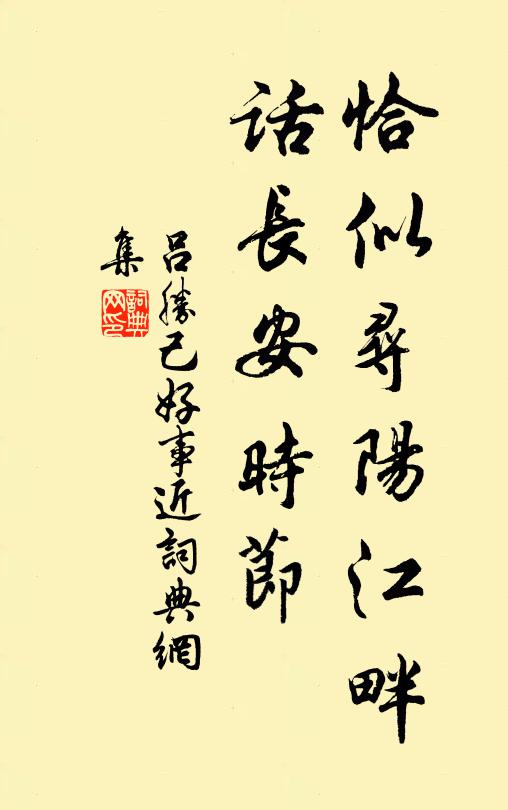 恰似尋陽江畔
話長安時節
呂勝己好事近詞典網
集
詞典
网印